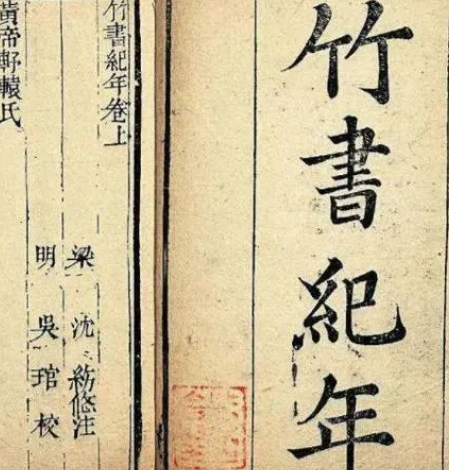 竹書紀年
竹書紀年卷上
梁 沈 注
明 吳 琯 校
黃帝軒轅氏